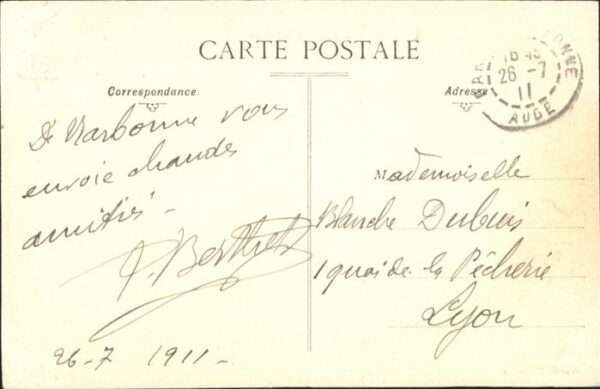 CARTE POSTALE
Correspondance
Adresse
NARBONNE
16 45
26 - 7
11
AUDE
De Narbonne vous
envoie chaudes
amitiés -
Berthet
26-7 1911 -
Mademoiselle
Blanche Dubuis
1 quai de la Pêcherie
Lyon